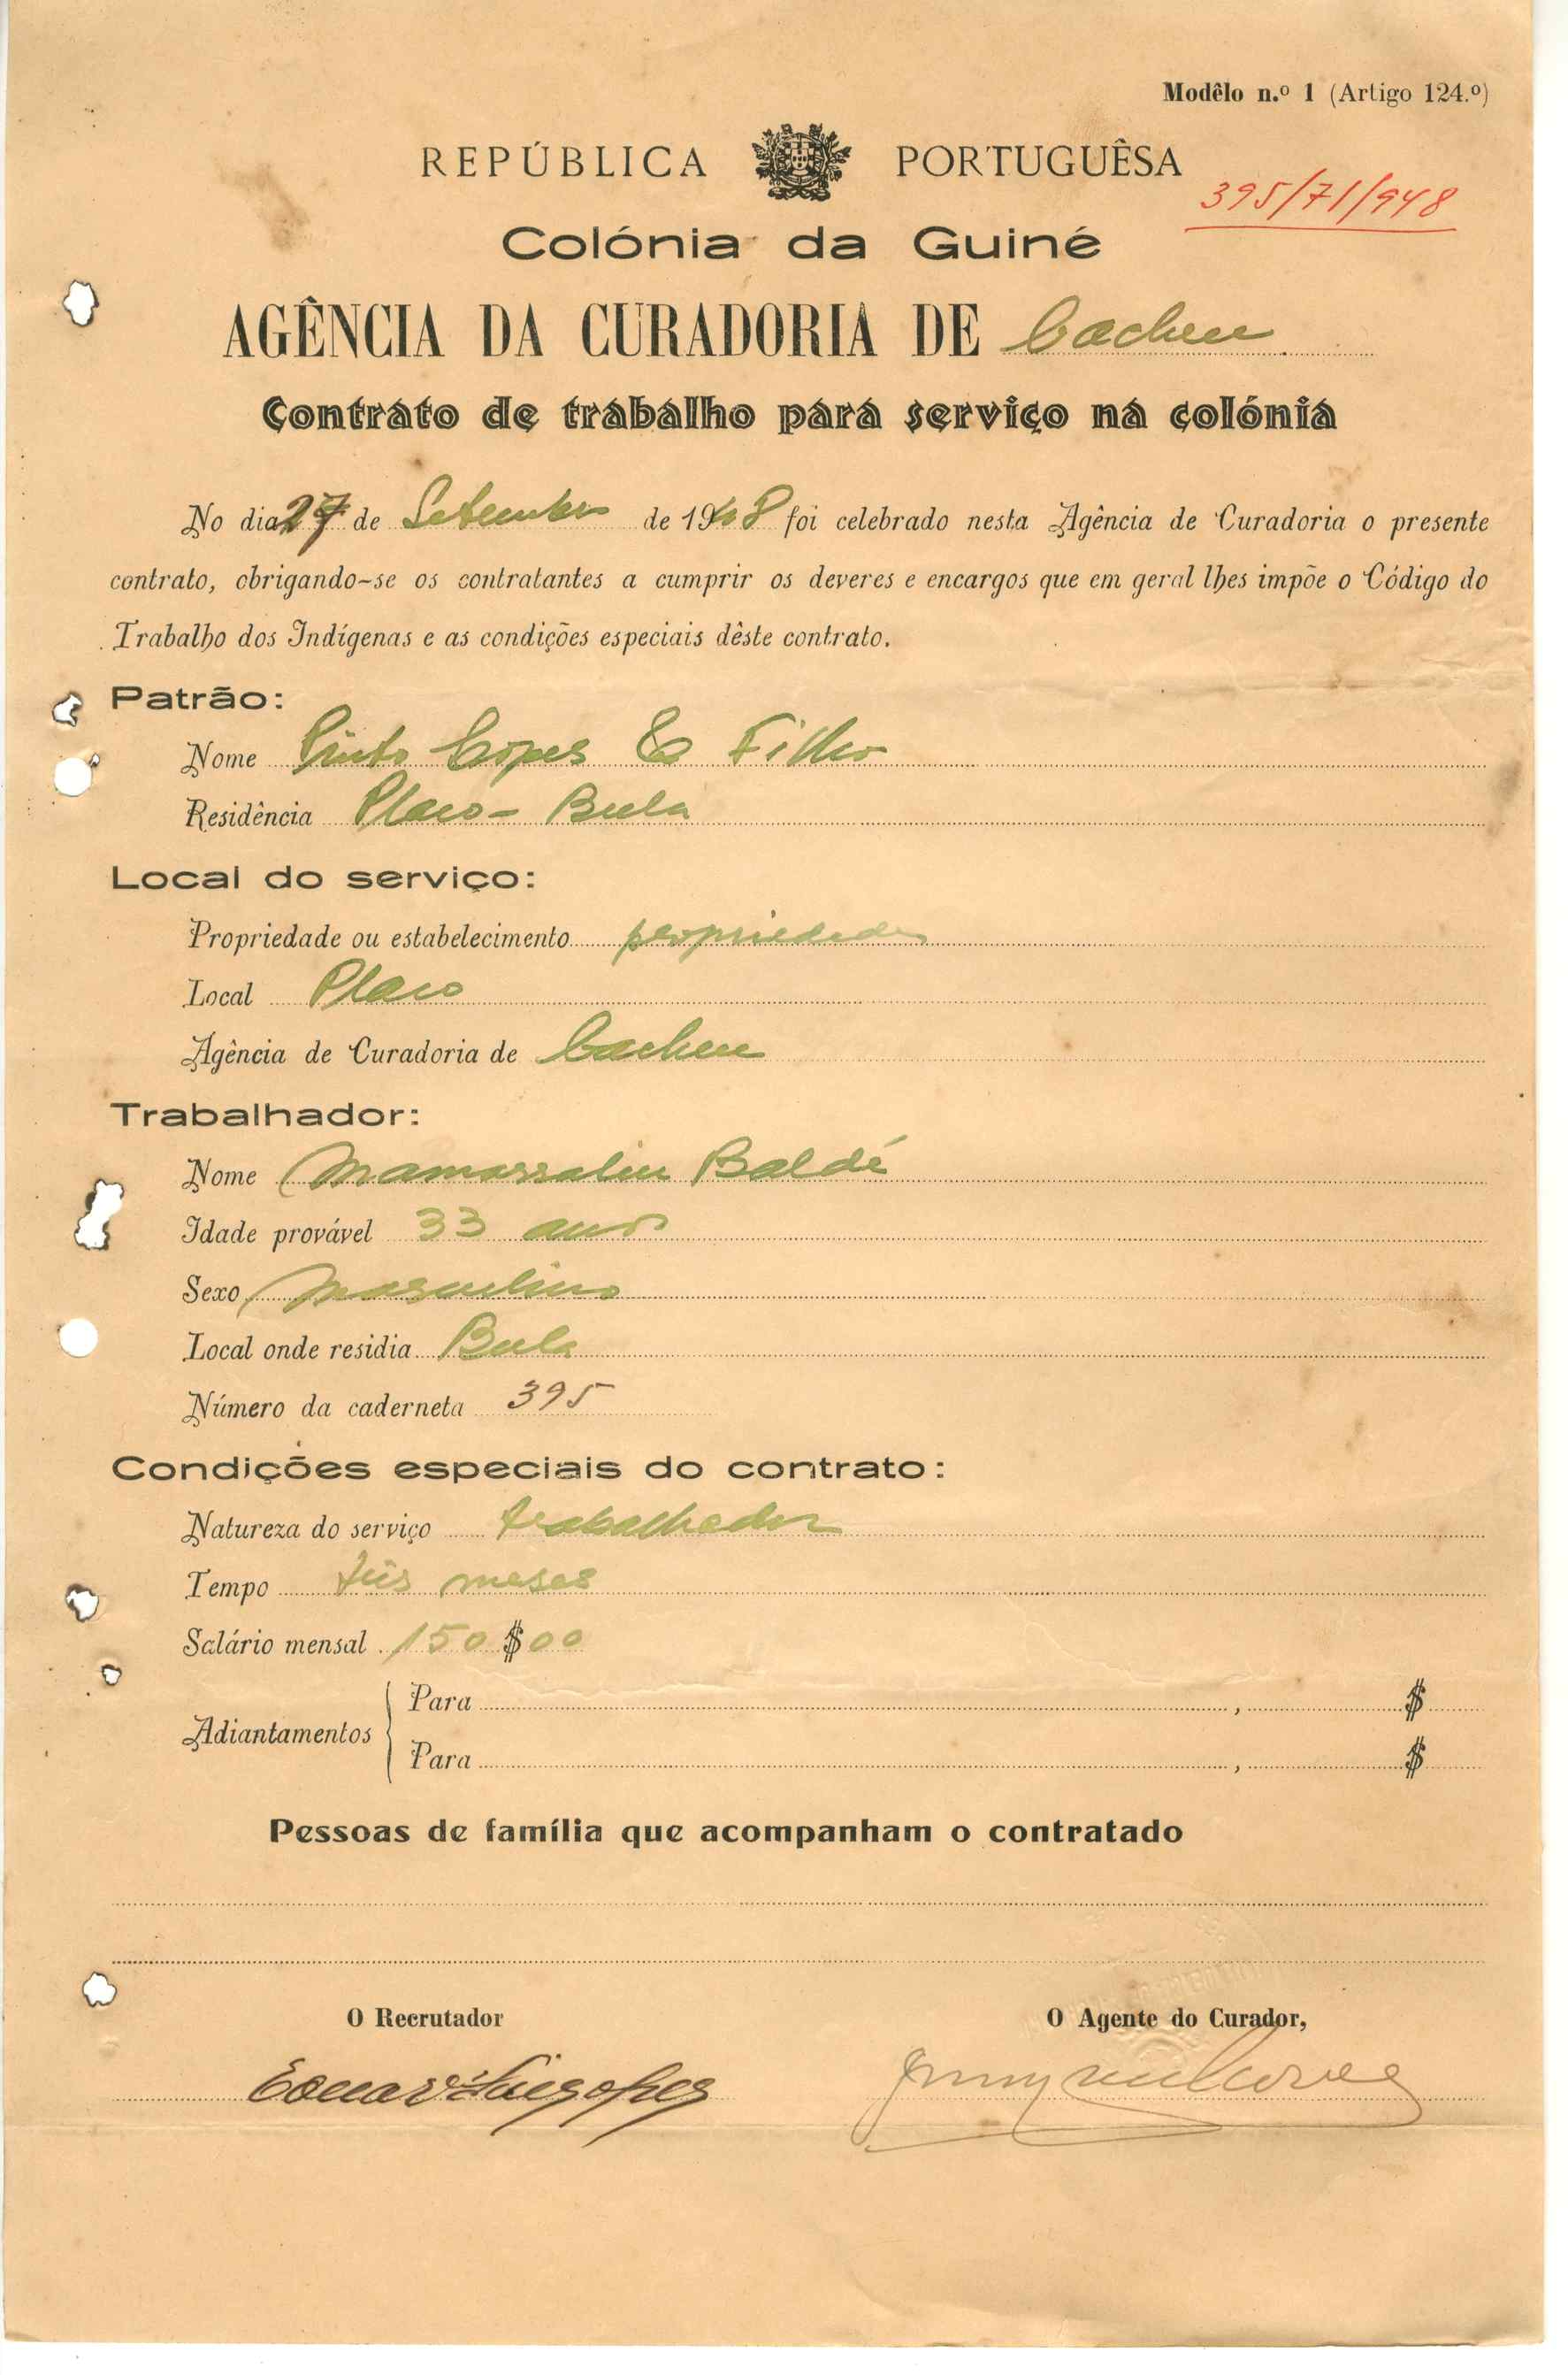 Modêlo n.º 1 (Artigo 124.º)
REPÚBLICA PORTUGUÊSA
395/71/948
Colónia da Guiné
AGÊNCIA DA CURADORIA DE Cacheu
Contrato de trabalho para serviço na colónia
No dia 27 de Setembro de 1948 foi celebrado nesta Agência de Curadoria o presente
contrato, obrigando-se os contratantes a cumprir os deveres e encargos que em geral lhes impõe o Código do
Trabalho dos Indígenas e as condições especiais dêste contrato.
Patrão:
Nome Pinto Lopes & Filho
Residência Placo - Bula
Local do serviço:
Propriedade ou estabelecimento propriedade
Local Placo
Agência de Curadoria de Cacheu
Trabalhador:
Nome Mamassaliu Baldé
Idade provável 33 anos
Sexo Masculino
Local onde residia Bula
Número da caderneta 395
Condições especiais do contrato:
Natureza do serviço trabalhador
Tempo três meses
Salário mensal 150$00
Adiantamentos
Para , $
Para , $
Pessoas de família que acompanham o contratado
O Recrutador
O Agente do Curador,